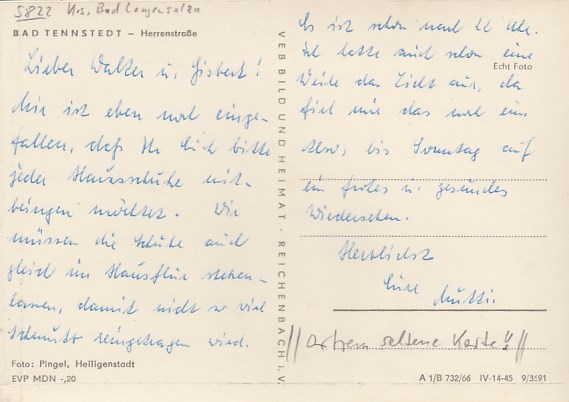 5822 Krs. Bad Langensalza
BAD TENNSTEDT – Herrenstraße
Lieber Walter u. Gisbert!
Mir ist eben noch einge-
fallen, daß Ihr Euch bitte
jeder Hausschuhe mit-
bringen möchtet. Wir
müssen die Schuhe auch
gleich im Hausflur stehen-
lassen, damit nicht so viel
Schmutz reingetragen wird.
Foto: Pingel, Heiligenstadt
EVP MDN -,20
VEB BILD UND HEIMAT · REICHENBACH i. V.
Es ist schon nach 22 Uhr.
Ich hatte auch schon eine
Echt Foto
Weile das Licht aus, da
fiel mir das noch ein.
Also, bis Sonntag auf
ein frohes u. gesundes
Wiedersehen.
Herzlichst
Eure
Mutti.
//extrem seltene Karte!!//
A 1/B 732/66 IV-14-45 9/3591